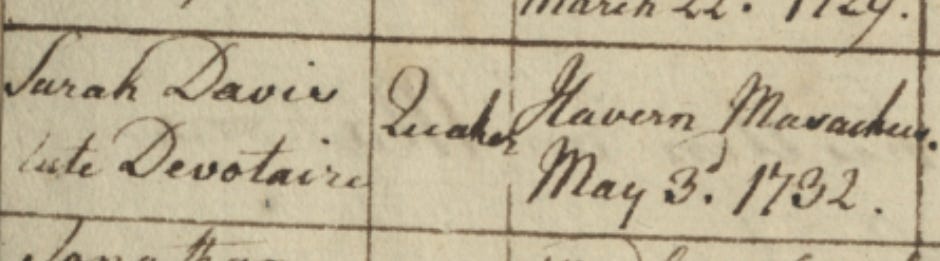 March 22. 1729.
Sarah Davis
late Devotaire
Quaker
Havern Masachus.
May 3d. 1732.
Jonathan